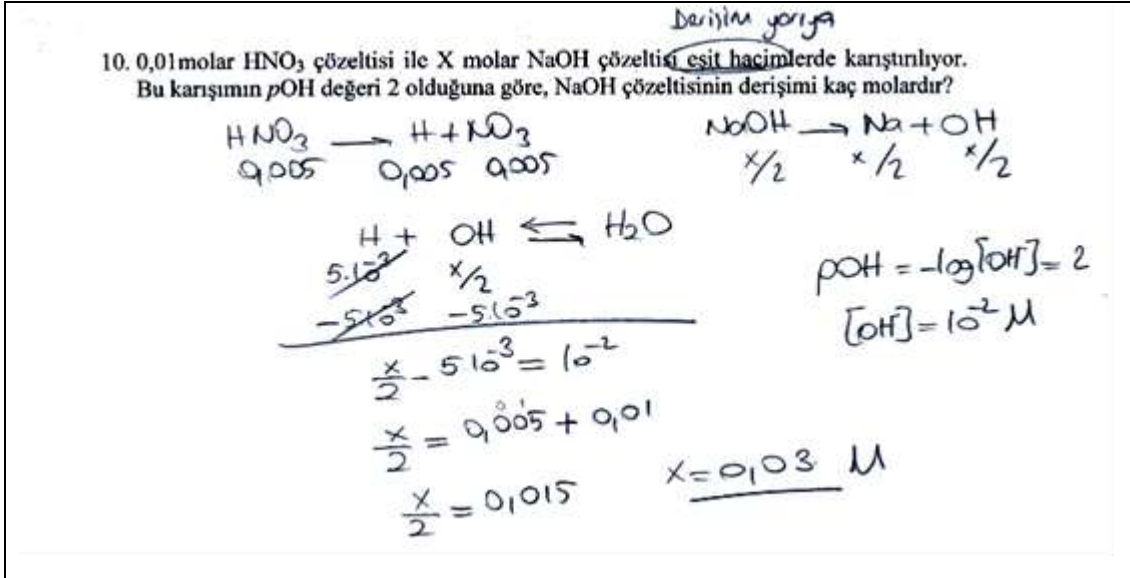 Derişim yarıya
10. 0,01molar HNO₃ çözeltisi ile X molar NaOH çözeltisi eşit hacimlerde karıştırılıyor.
Bu karışımın pOH değeri 2 olduğuna göre, NaOH çözeltisinin derişimi kaç molardır?
HNO₃ → H + NO₃
0,005 0,005 0,005
NaOH → Na + OH
x/2 x/2 x/2
H + OH ⇆ H₂O
5.10⁻³ x/2
-5.10⁻³ -5.10⁻³
x/2 - 5 10⁻³ = 10⁻²
x/2 = 0,005 + 0,01
x/2 = 0,015
pOH = -log[OH⁻] = 2
[OH⁻] = 10⁻² M
x = 0,03 M